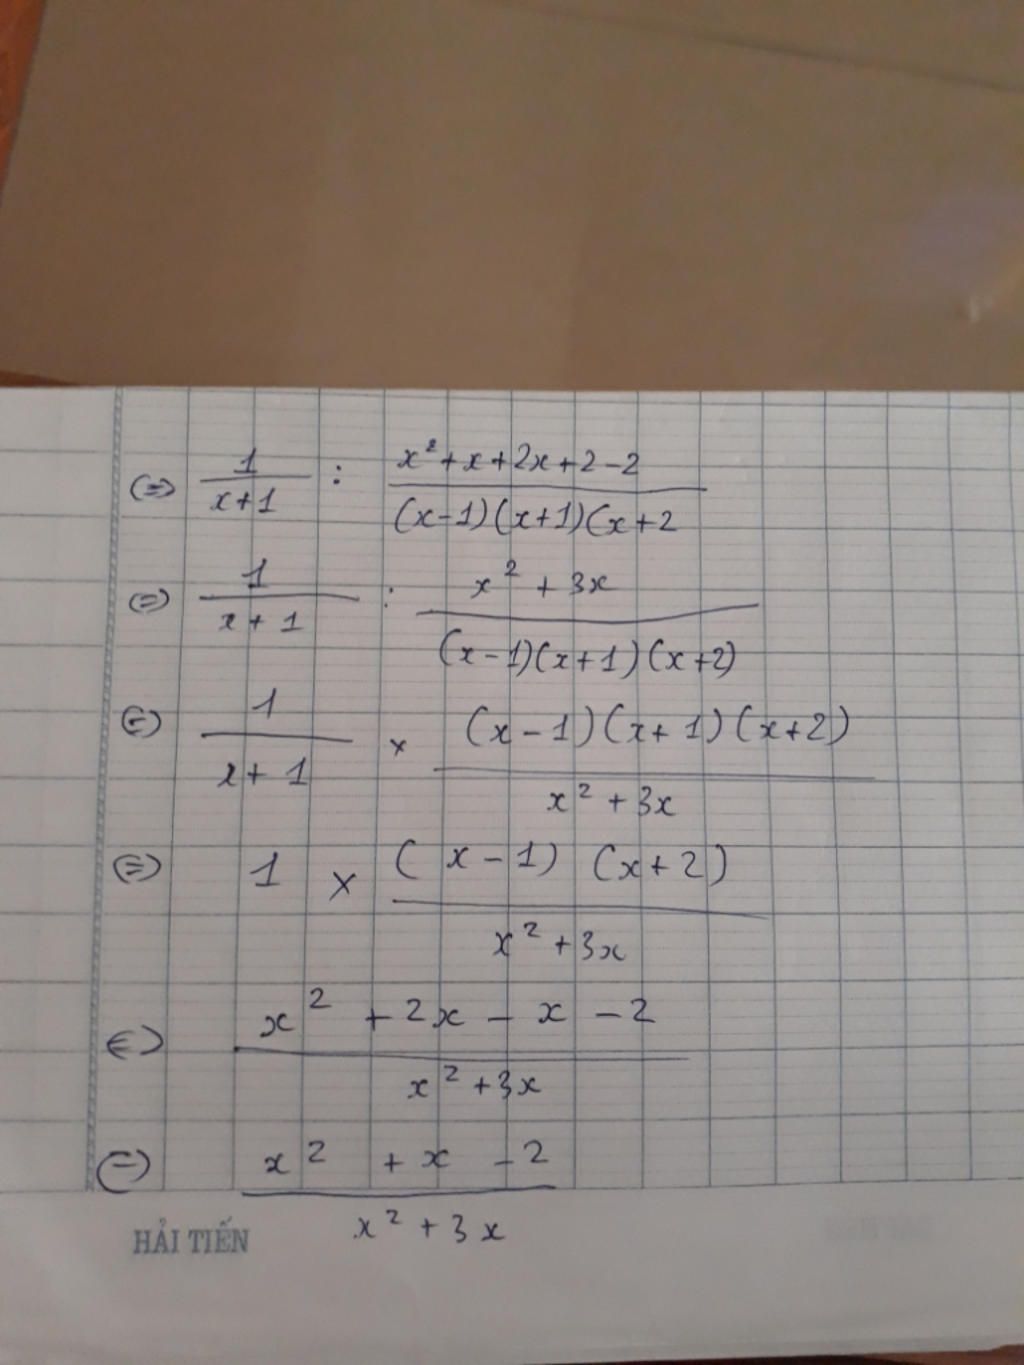 (=) 1/(x+1) : (x²+x+2x+2-2)/((x-1)(x+1)(x+2)
(=) 1/(x+1) : (x²+3x)/((x-1)(x+1)(x+2))
(=) 1/(x+1) × ((x-1)(x+1)(x+2))/(x²+3x)
(=) 1 × ((x-1)(x+2))/(x²+3x)
(=) (x²+2x-x-2)/(x²+3x)
(=) (x²+x-2)/(x²+3x)
HẢI TIẾN